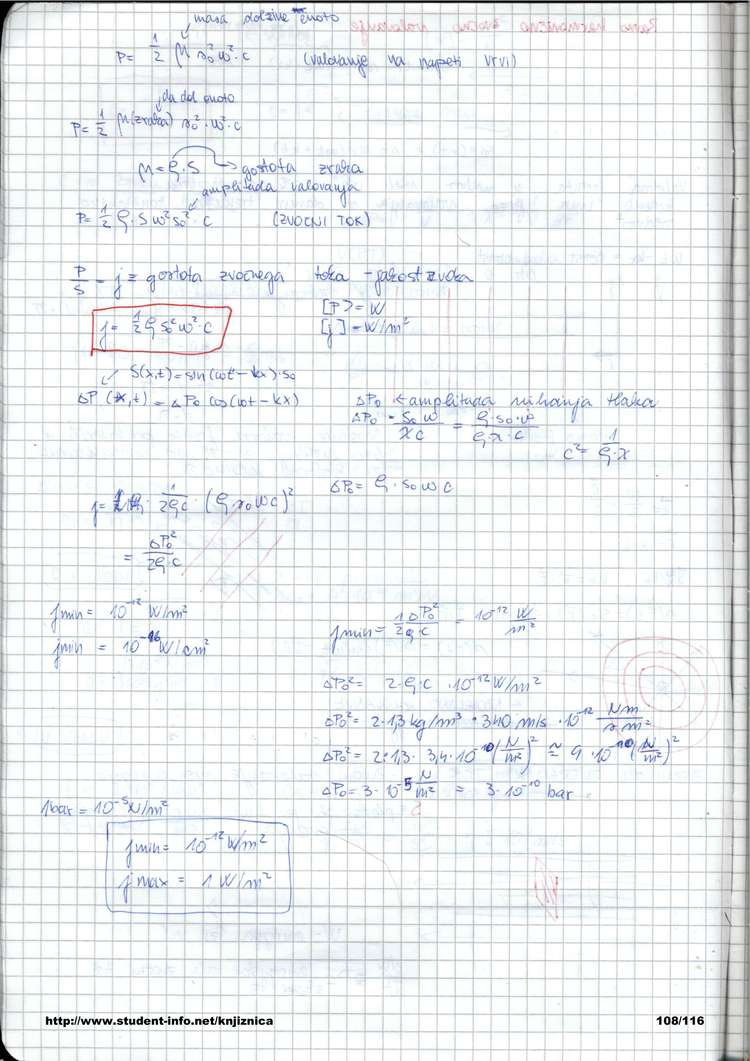 masa dolžine enoto
P = 1/2 μ s₀² ω² · c (valovanje na napeti vrvi)
da dol enoto
P = 1/2 μ(zraka) s₀² · ω² · c
μ = ρ · S → gostota zraka
amplituda valovanja
P = 1/2 ρ · S ω² s₀² · c (ZVOČNI TOK)
P/S = j = gostota zvočnega toka - jakost zvoka
j = 1/2 ρ s₀² ω² · c
[P] = W
[j] = W/m²
S(x,t) = sin(ωt - kx) · s₀
ΔP(x,t) = ΔP₀ cos(ωt - kx)
ΔP₀ ← amplituda nihanja tlaka
ΔP₀ = s₀ ω / χ c = ρ · s₀ · ω / ρ · χ · c
c² = 1 / ρ · χ
ΔP₀ = ρ · s₀ ω c
j = 1/2ρc · (ρ s₀ ω c)²
= ΔP₀² / 2ρ c
jmin = 10⁻¹² W/m²
jmin = 10⁻¹⁶ W/cm²
jmin = 1/2 ΔP₀² / ρ · c = 10⁻¹² W/m²
ΔP₀² = 2 · ρ · c · 10⁻¹² W/m²
ΔP₀² = 2 · 1,3 kg/m³ · 340 m/s · 10⁻¹² Nm / s m²
ΔP₀² = 2 · 1,3 · 3,4 · 10⁻¹⁰ (N/m²)² ≈ 9 · 10⁻¹⁰ (N/m²)²
ΔP₀ = 3 · 10⁻⁵ N/m² = 3 · 10⁻¹⁰ bar
1 bar = 10⁻⁵ N/m²
jmin = 10⁻¹² W/m²
jmax = 1 W/m²
http://www.student-info.net/knjiznica 108/116